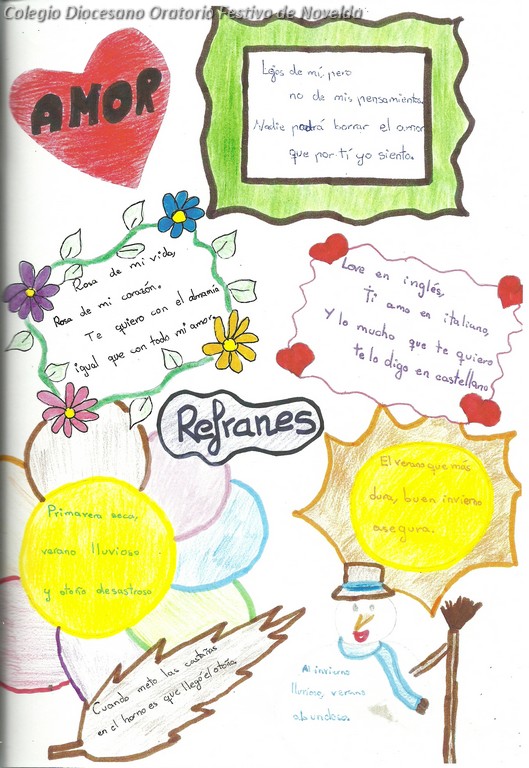 Colegio Diocesano Oratorio Festivo de Novelda
AMOR
Lejos de mí pero
no de mis pensamientos.
Nadie podrá borrar el amor
que por tí yo siento.
Rosa de mi vida,
Rosa de mi corazón.
Te quiero con el alma
igual que con todo mi amor.
Love en inglés,
Ti amo en italiano,
Y lo mucho que te quiero
te lo digo en castellano
Refranes
Primavera seca,
verano lluvioso
y otoño desastroso
El verano que más
dura, buen invierno
asegura.
Cuando meto las castañas
en el horno es que llegó el otoño.
Al invierno
lluvioso, verano
abundoso.